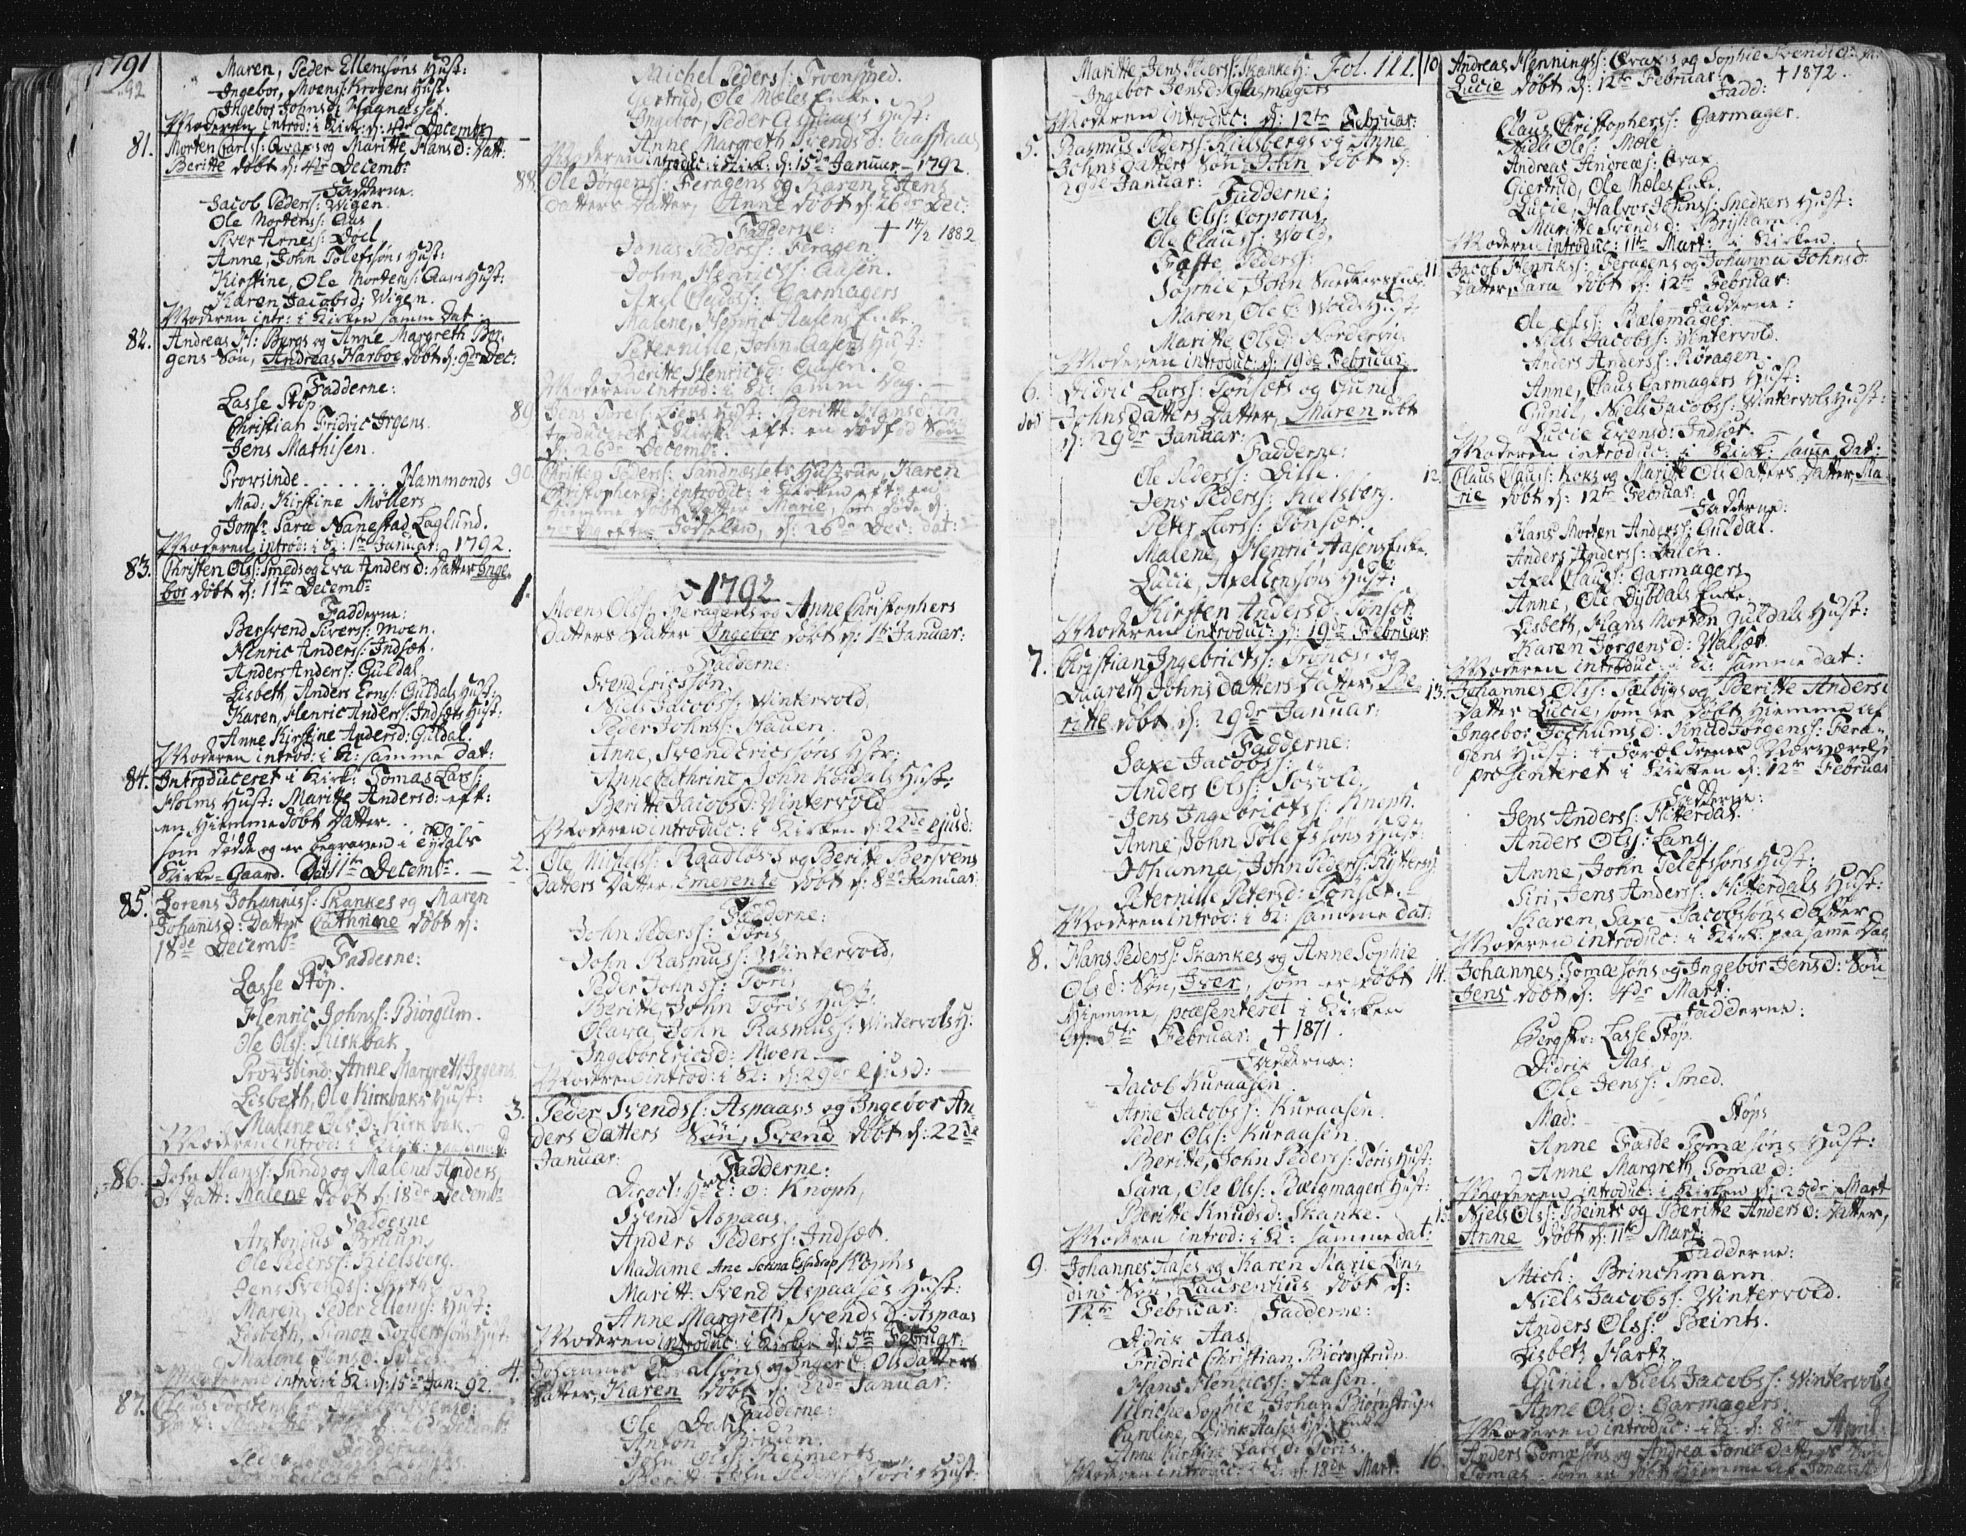 1791
92
Maren, Peder Ellensøns Hust:
Ingebor, Moens: Krogens Hust:
Ingebor Johnsd: Hagnæsset
Moderen introd: i Kirk: d: 4de Decembr
81. Morten Carlss: Aaxs og Maritte Hansd: Datt:
Beritte døbt d: 4de Decembr
Fadderne.
Jacob Peders: Wigen.
Ole Mortenss: Aas
Siver Arness: Doel
Anne, John Tolefsøns Hust:
Kirstine, Ole Mortens: Aas Hust:
Karen Jacobsd: Wigen.
Moderen intr: i Kirken samme Dat.
82. Andreas H: Bergs og Anne Margreth Bor-
gens Søn, Andreas Harboe døbt d: 9de Dec:
Fadderne:
Lasse Støp
Christian Fridric Irgens.
Jens Mathisen.
Provsinde . . . . . . Hammonds
Mad: Kirstine Møllers
Jomf: Sara Nanestad Laglund.
Moderen introd: i K: 1te Januar: 1792.
83. Christen Olss: Smeds og Eva Andersd: Datter Inge-
bor døbt d: 11te Decembr
Fadderne:
Bersvend Siverss: Moen.
Henric Anderss: Indsæt.
Anders Anderss: Guldal
Lisbeth, Anders Erns: Guldals Hust:
Karen, Henric Anders: Indsets Hust:
Anne Kirstine Andersd: Guldal.
Moderen introd: i K: samme Dat:
84. Introduceret i Kirk: Tomas Larss:
Holms Hust: Maritte Andersd: eft:
en Hiemme døbt Datter
som døde og er begraven i Tydals
Kirke-Gaard. Dat: 11te Decembr.
85. Lorens Johanniss: Skankes og Maren
Johannisd: Datter Cathrine døbt d:
18de Decembr
Fadderne:
Lasse Støp.
Henric Johnss: Biorgum.
Ole Olss: Kirkbak
Provsind: Anne Margreth Irgens
Lisbeth, Ole Kirkbaks Hust:
Malene Olsd: Kirkbak.
Moderen introd: i Kirk:
86. John Hans: Sunds og Malene Anders
d: Datt: Malene døbt d: 18de Decembr
Fadderne
Antonius Bruun
Ole Pederss: Kielsberg.
Jens Svendss:
Maren, Peder Ellenss: Hust:
Lisbeth, Simon Tordersøns Hust:
Moderen introd: i K: d: 15de Jan: 92.
87.
Fadderne
Michel Pederss: Troensmed.
Gertrud, Ole Mæles Enke.
Ingebor, Peder Hust:
Anne Margreth Svendsd: Aasfaas
Moderen introduc: i Kirk: d: 15de Januar - 1792.
88. Ole Jørgenss: Feragens og Karen Estens
Datters Datter, Anne døbt d: 26de Dec:
Fadderne: † 14/2 1882
Jonas Pederss: Feragen
John Henricss: Aasen.
Axel Clauss: Garmagers
Malene, Henric Aasens Enke.
Peternille, John Aasens Hust:
Beritte Henricsd: Aasen.
Moderen introd: i K: samme Dag.
89. Hust: Beritte Hansd: in
troduceret i Kirk: eft: en dødfød Søn
d: 26de Decembr.
90. Christen Pederss: Sandnæssets Hustrue, Karen
Christophersd: introduc: i Kirken eft: en
Hiemme døbt Datter Marie, som døde
Fødselen, d: 26de Dec: dat:
1792
1. Moens Olss: Feragens og Anne Christophers
Datters Datter Ingebor døbt d: 1te Januar:
Fadderne:
Svend Ericssøn,
Niels Jacobs: Wintervold,
Peder Johnss: Hauen
Anne, Svend Ericssøns Hustr:
Anne Cathrine, John Koddals Hust:
Beritte Jacobsd: Wintervold
Moderen introduc: i Kirken d: 22de ejusd:
2. Ole Nielss: Raadløss og Beritte Bersvens
Datters Datter Emerense døbt d: 8de Januar:
Fadderne:
John Pederss: Toris
John Rasmuss: Wintervold,
Peder Johnss: Toris
Beritte, John Toris Hust:
Olava, John Rasmuss: Wintervols H:
Ingebor Ericsd: Moen
Moderen introd: i K: d: 29de ejusd:
3. Peder Svendss: Aspaass og Ingebor An-
ders Datters Søn, Svend døbt d: 22de
Januar:
Fadderne:
Direct: Hr E: O: Knoph,
Svend Aspaas.
Anders Pederss: Indsæt.
Madame Ane Serina Essedrop Knophs
Maritt: Svend Aspaases Hust:
Anne Margreth Svendsd: Aspaas
Moderen introduc: i Kirke d: 5te Februar:
4. Johannes og Inger C: Ols Datters
Datter, Karen døbt d: 22de Januar:
Fadderne:
Ole Dahl
Anton Bruun.
John Olss: Reimerts
Berit: John Pederss: Toris Hust
Maritte, Jens Peders: Skanke H: Fol. 111.
Ingebor Jensd: Glasmagers
Moderen introduc: d: 12te Februar:
5. Rasmus Peders: Kielsbergs og Anne
Johns Datters Søn, John døbt d:
29de Januar:
Fadderne;
Ole Olss: Corporas
Ole Clauss: Wold,
Faste Pederss:
Sophie, John Snedkers Enke
Maren, Ole C: Wolds Hust:
Maritte Olsd: Nordervi
Moderen introduc: d: 19de Februar:
6. Didric Larss: Tonsets og Gunil
død Johns Datters Datter, Maren døbt
d: 29de Januar:
Fadderne:
Ole Peders: Dille.
Jens Peders: Kielsberg.
Peter Larss: Tonset.
Malene, Henric Aasens Enke.
Lucie, Axel Ensøns Hust:
Kirsten Andersd: Tonset.
Moderen introduc: d: 19de Februar:
7. Chrystian Ingebrictss: Tronæss og
Quareth Johns Datters Datter, Be-
ritte døbt d: 29de Januar:
Fadderne:
Saxe Jacobss:
Anders Olss: Tovold
Jens Ingebrictss: Knoph.
Anne, John Tolefssøns Hust:
Johanna, John Pederss: Rytters
Peternille Petersd: Tonset.
Moderen introd: i K: samme dat:
8. Hans Pederss: Skankes og Anne Sophie
Olsd: Søn, Iver, som er døbt
Hiemme, præsenteret i Kirken
d: 5te Februar: † 1871.
Fadderne:
Jacob Kuraasen
Arne Jacobss: Kuraasen.
Peder Olss: Kuraasen.
Beritte, John Pederss: Toris Hust:
Sara, Ole Olss: Bælgmagers Hust:
Beritte Knudsd: Skanke.
Moderen introd: i K: samme dat:
9. Johannes Aases og Karen Marie Lin-
dins Søn, Laurentius døbt d:
12te Februar: Fadderne:
Didrik Aas,
Fridric Christian Biørnstrup.
Hans Henricss: Aasen.
Ulriche Sophie, Johan Biørnstrups
Caroline, Didrik Aases Enke
Anne Kirstine Larsd: Toris.
Moderen introduc: i K: d: 18de Mart:
10. Andreas Hennings: Aaxs og Sophie Svendsd:
Lucie døbt d: 12te Februar † 1872.
Fadd:
Claus Christopherss: Garmager.
Niels Olss: Mæle
Andreas Andreæs: Aax.
Giertrud, Ole Mæles Enke.
Lucie, Halvor Johns: Snedkers Hust:
Maritte Svendsd: Brysham
Moderen introduc: 11te Mart: i Kirken.
11. Jacob Henriks: Feragens og Johanna Johnsd:
Datter, Sara døbt d: 12te Februar:
Fadderne:
Ole Olss: Bælgmager
Niels Jacobss: Wintervold.
Anders Anderss: Røragen.
Anne, Claus Garmagers Hust:
Gunil, Niels Jacobss: Wintervols Hust:
Lucie Evensd: Indsæt.
Moderen introduc: i Kirk: same dat:
12. Claus Clauss: Koks og Maritte Ols Datters Datter, Ma-
rie døbt d: 12te Februar.
Fadderne:
Hans Morten Anderss: Guldal.
Anders Anderss: Dalen.
Axel Clauss: Garmagers
Anne, Ole Dybdals Enke.
Lisbeth, Hans Morten Guldals Hust:
Karen Jørgensd: Walset.
Moderen introduc: i K: samme dat:
13. Johannes Olss: Sælbigs og Beritte Andersd
Datter Lucie, som er døbt Hiemme af
Ingebor Jochumsd: Knud Jørgenss: Fera-
gens Hust: i Forældrenes Nærværelse
præsenteret i Kirken d: 12te Februar
Fadderne:
Jens Anderss: Hitterdal.
Anders Olss: Lang.
Anne, John Tolefsøns Hust:
Siri, Jens Anderss: Hitterdals Hust:
Karen Saxe Jacobsøns Datter
Moderen introduc: i Kirk: paa same Dag
14. Johannes Tomæsøns og Ingebor Jensd: Søn
Jens døbt d: 4de Mart:
Fadderne:
Bergskr: Lasse Støp.
Didrik Aas.
Ole Jenss: Smed.
Mad: Støps
Anne Faste Tomæsøns Hust:
Anne Margreth Tomæd:
Moderen introduc: i Kirken d: 25de Mart
15. Niels Olss: Beints og Beritte Andersd: Datter,
Anne døbt d: 11te Mart:
Fadderne:
Mich: Brinchmann
Niels Jacobss: Wintervold.
Anders Olss: Beints.
Lisbeth Hartz
Gunil, Niels Jacobss: Wintervols
Anne Olsd: Garmagers.
Moderen introduc: i K: d: 8de April:
16. Anders Tomæsøns og Andrea Jonæ Datters Søn
Tomas, som er døbt Hiemme af